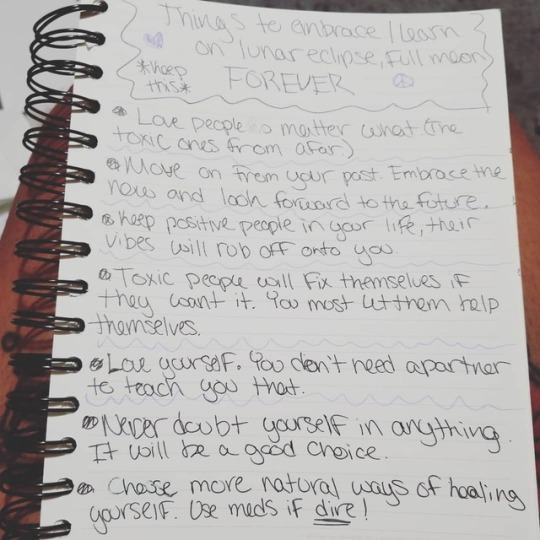 Things to embrace / learn
on lunar eclipse, Full moon
*keep
this*
FOREVER
Love people no matter what. (The
toxic ones from afar.)
Move on from your past. Embrace the
now and look forward to the future.
Keep positive people in your life, their
vibes will rub off onto you.
Toxic people will fix themselves if
they want it. You must let them help
themselves.
Love yourself. You don't need a partner
to teach you that.
Never doubt yourself in anything.
It will be a good choice.
Choose more natural ways of healing
yourself. Use meds if dire!